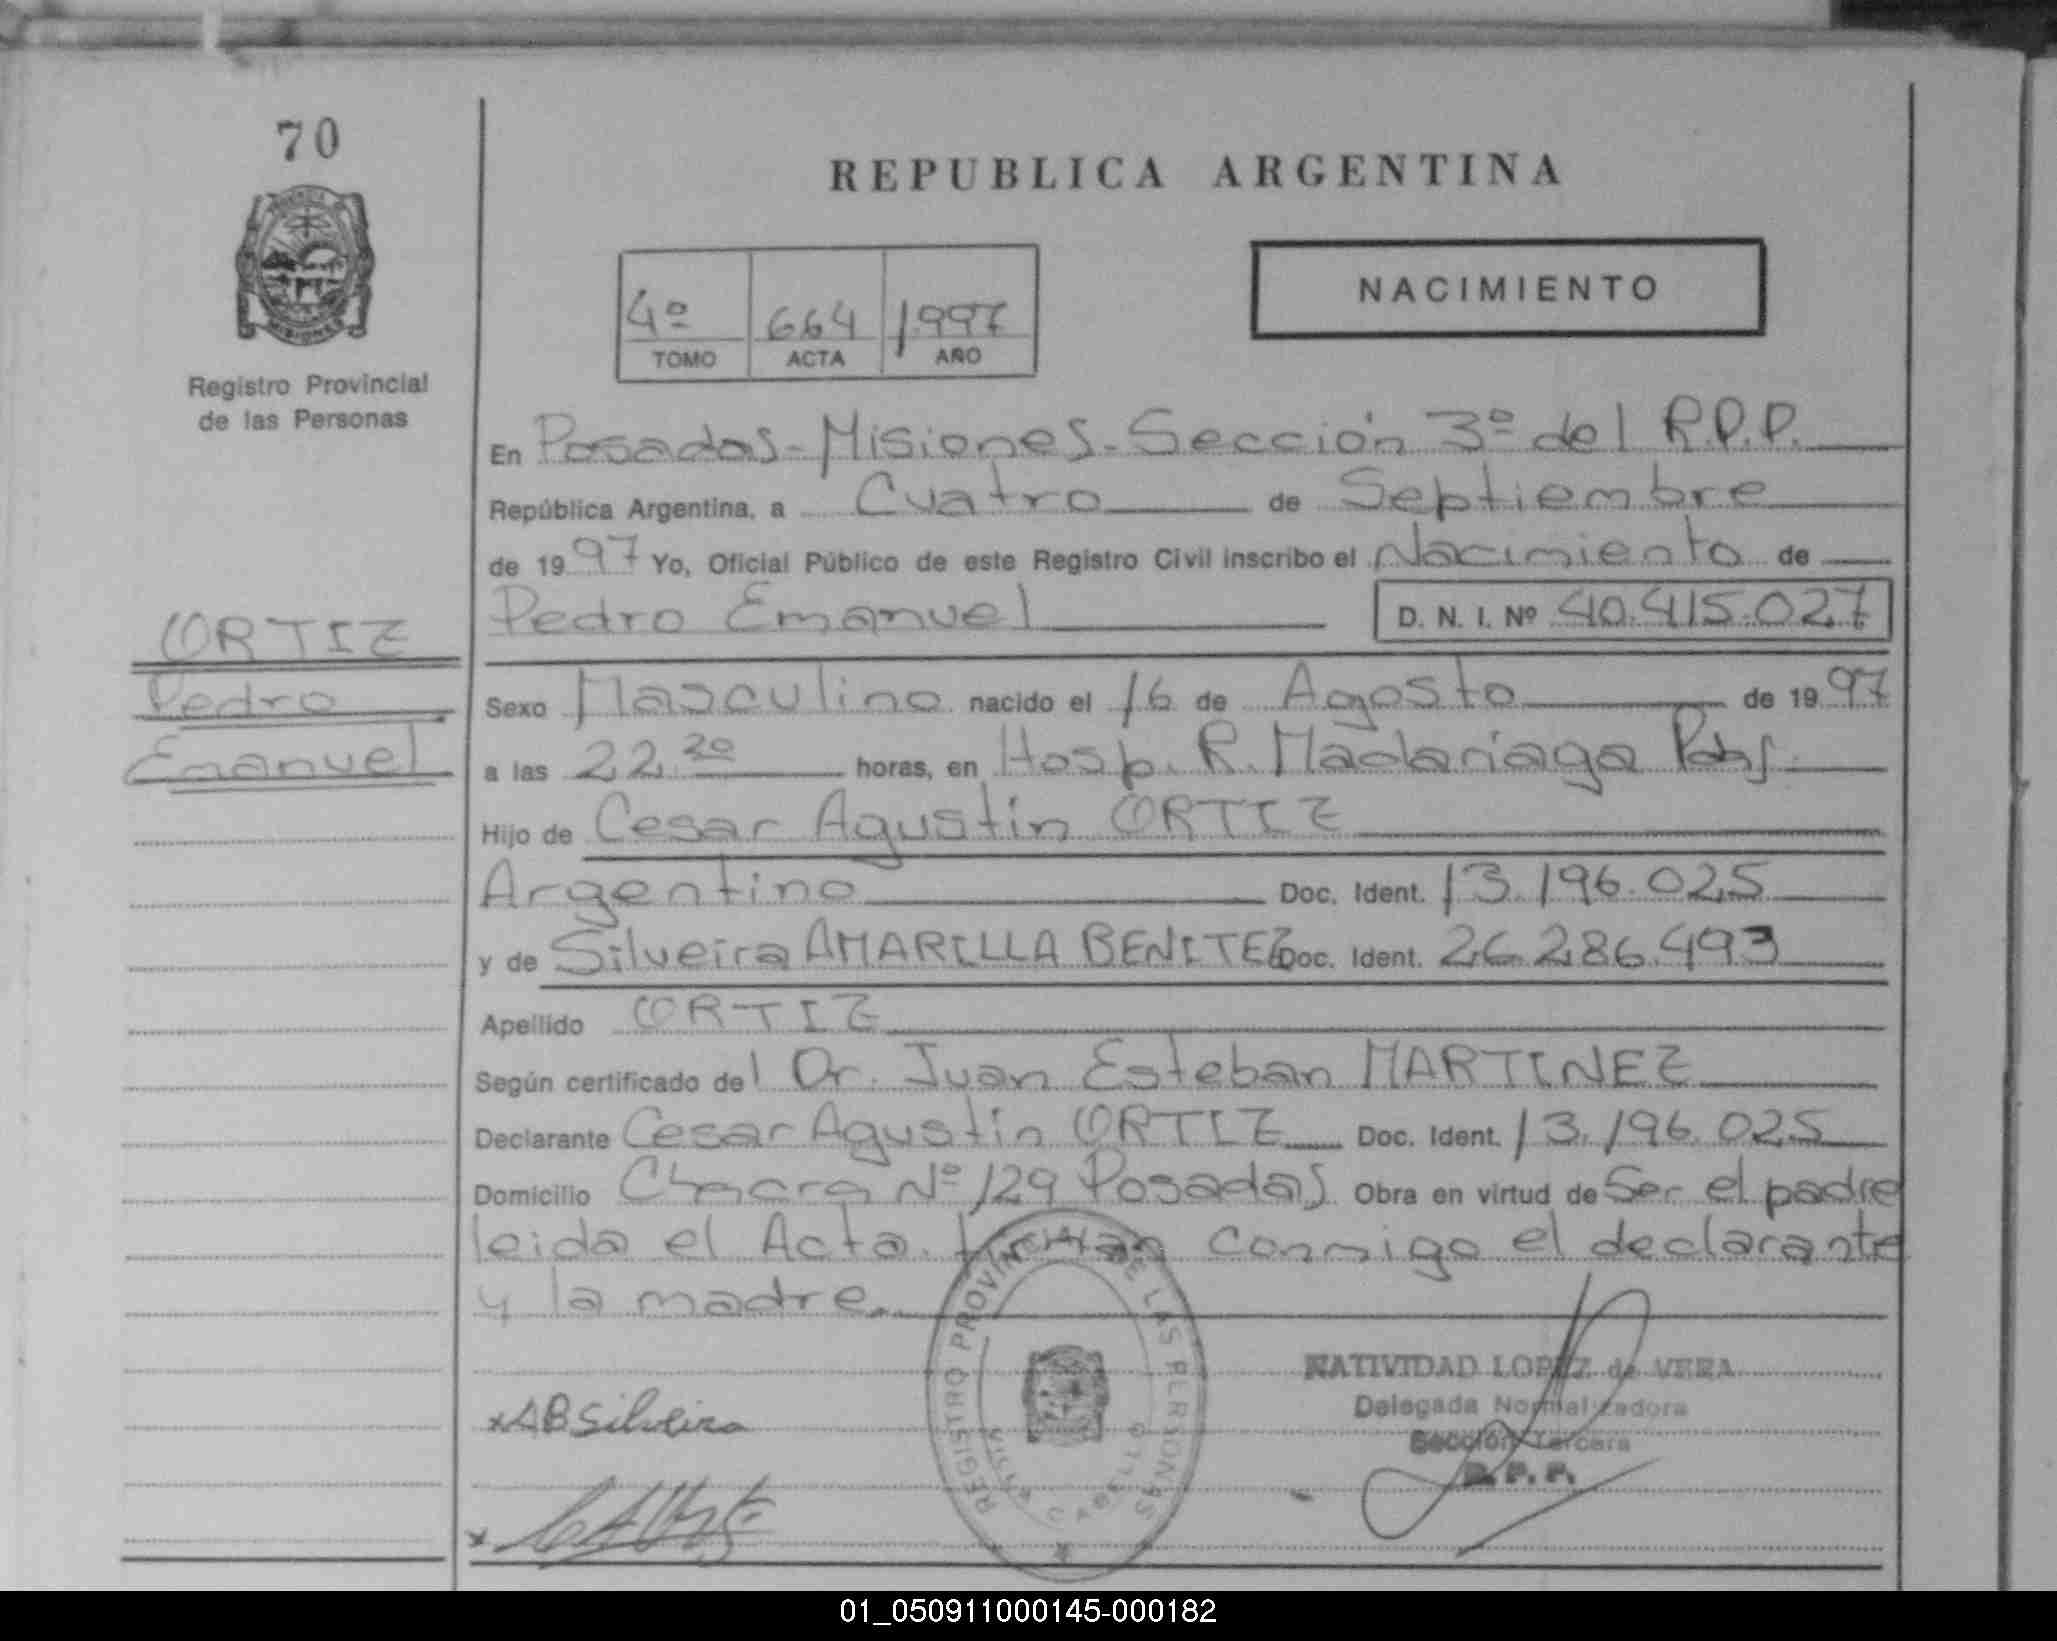 70
REPUBLICA ARGENTINA
MISIONES
Registro Provincial
de las Personas
NACIMIENTO
4º 664 1997
TOMO ACTA AÑO
En Posadas-Misiones-Sección 3º del R.P.P.
República Argentina, a Cuatro de Septiembre
de 1997 Yo, Oficial Público de este Registro Civil inscribo el Nacimiento de
Pedro Emanuel D. N. I. Nº 40.415.027
ORTIZ
Pedro
Emanuel
Sexo Masculino nacido el 16 de Agosto de 1997
a las 22 20 horas, en Hosp. R. Madariaga Pdas.
Hijo de Cesar Agustin ORTIZ
Argentino Doc. Ident. 13.196.025
y de Silveira AMARILLA BENITEZ Doc. Ident. 26.286.493
Apellido ORTIZ
Según certificado del Dr. Juan Esteban MARTINEZ
Declarante Cesar Agustin ORTIZ Doc. Ident. 13.196.025
Domicilio Chacra Nº 129 Posadas Obra en virtud de Ser el padre
leida el Acta. firman conmigo el declarante
y la madre.
REGISTRO PROVINCIAL DE LAS PERSONAS
NATIVIDAD LOPEZ de VERA
Delegada Normalizadora
Sección Tercera
R. P. P.
x AB Silveira
01_050911000145-000182